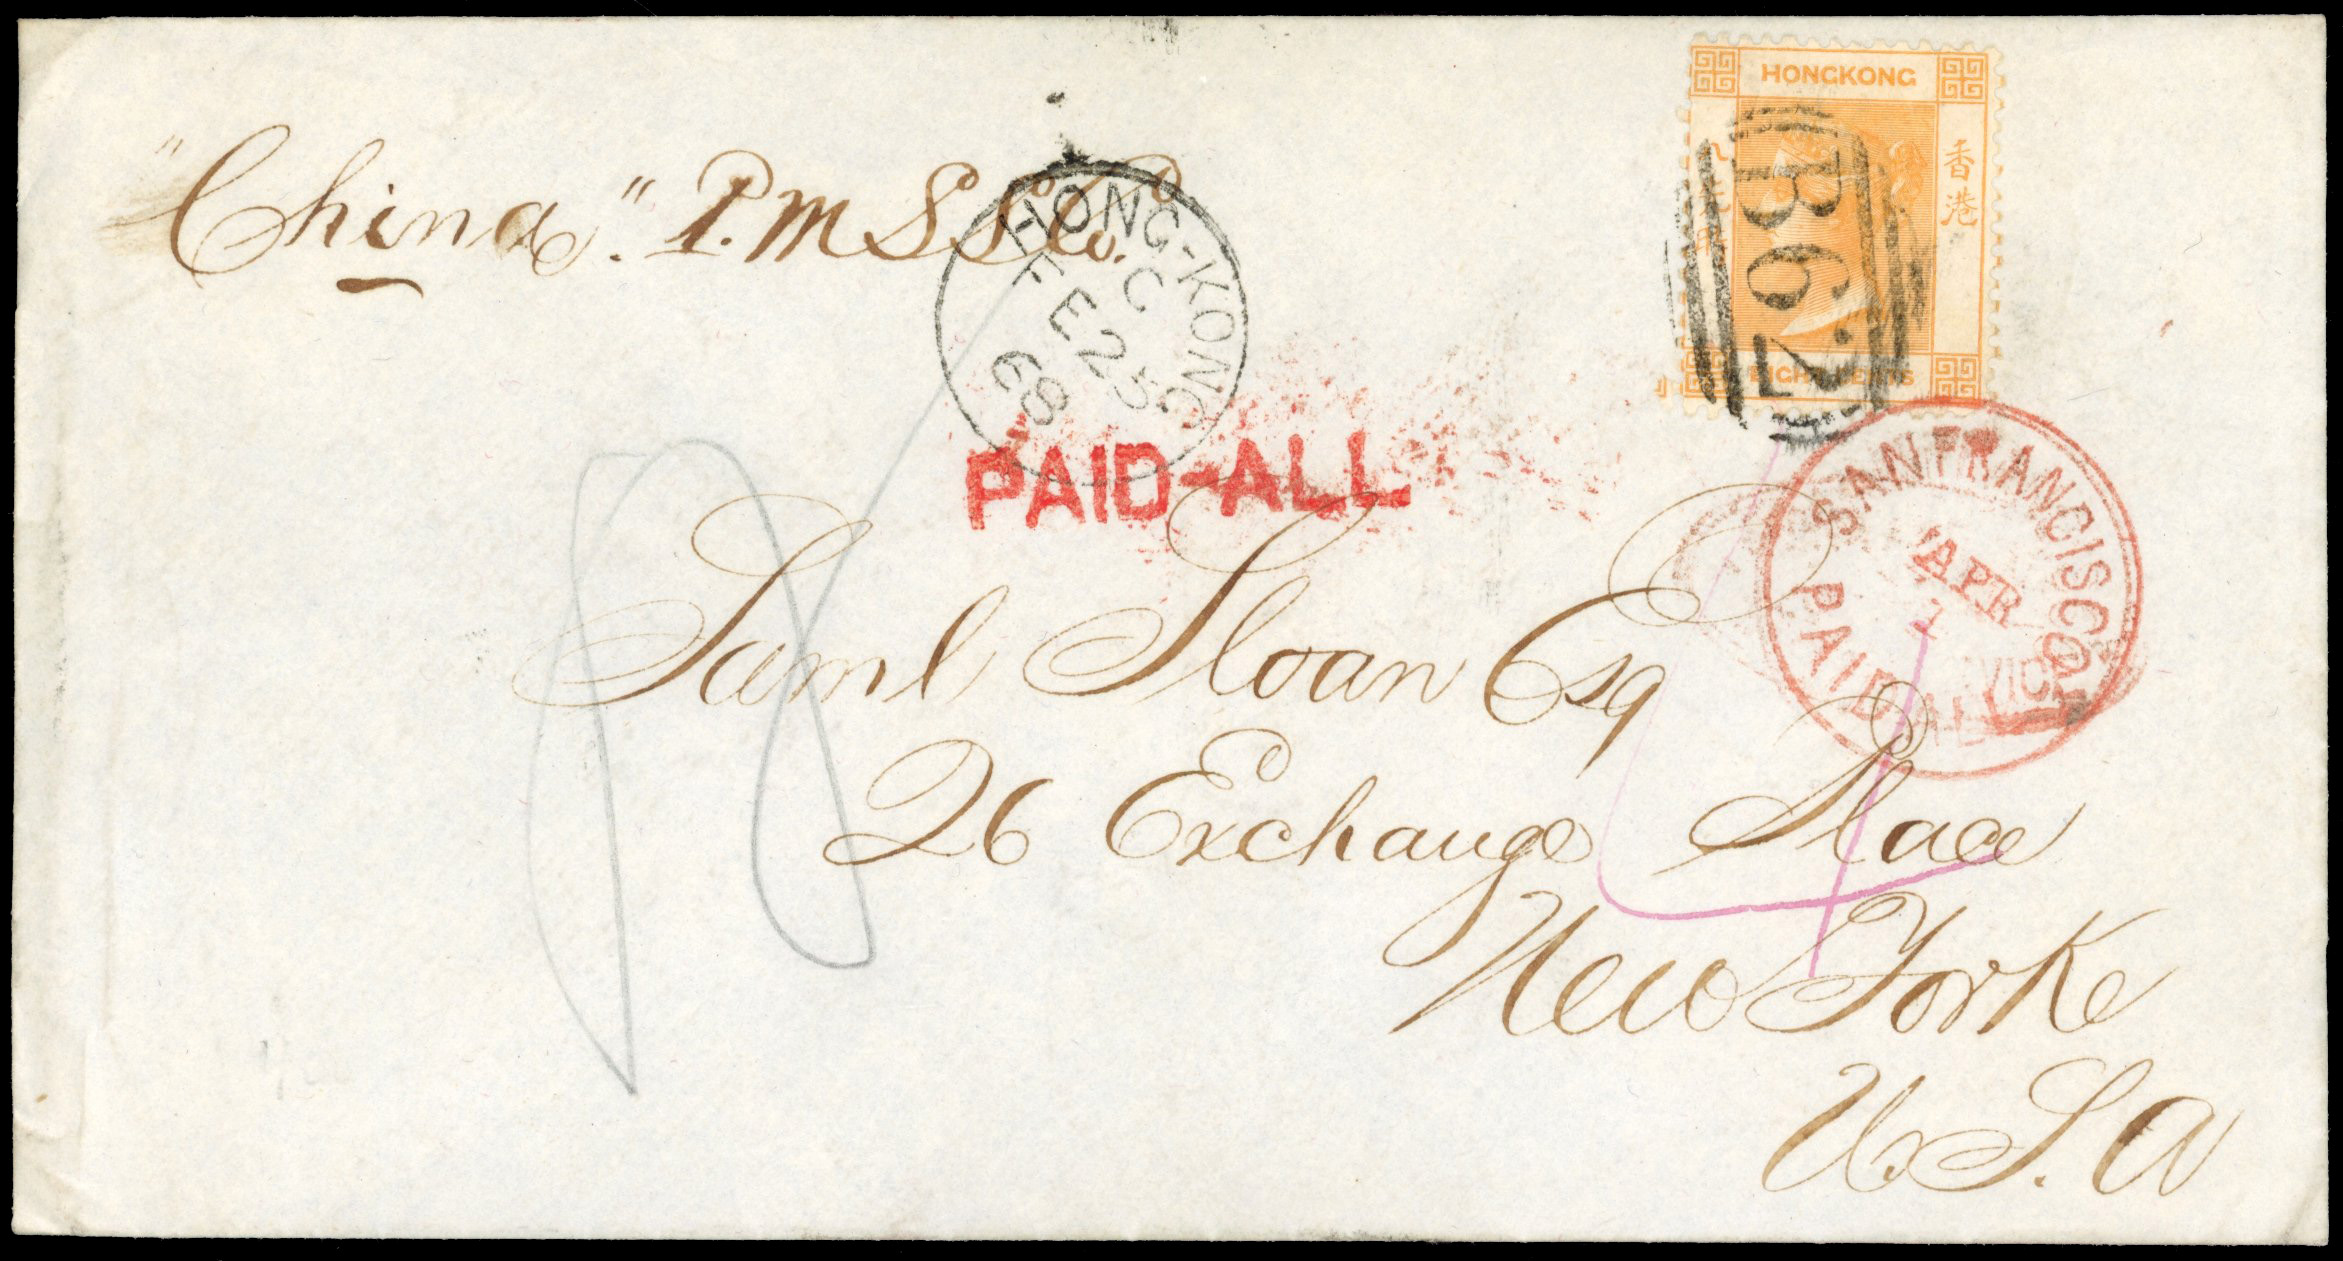 "China". P.M.S.S.Co.
HONG-KONG
C
FE 25
68
HONGKONG
香港
B62
EIGHT CENTS
PAID-ALL
SAN FRANCISCO
APR
1
PAID ALL
Saml Sloan Esq
26 Exchange Place
New York
U.S.A
4